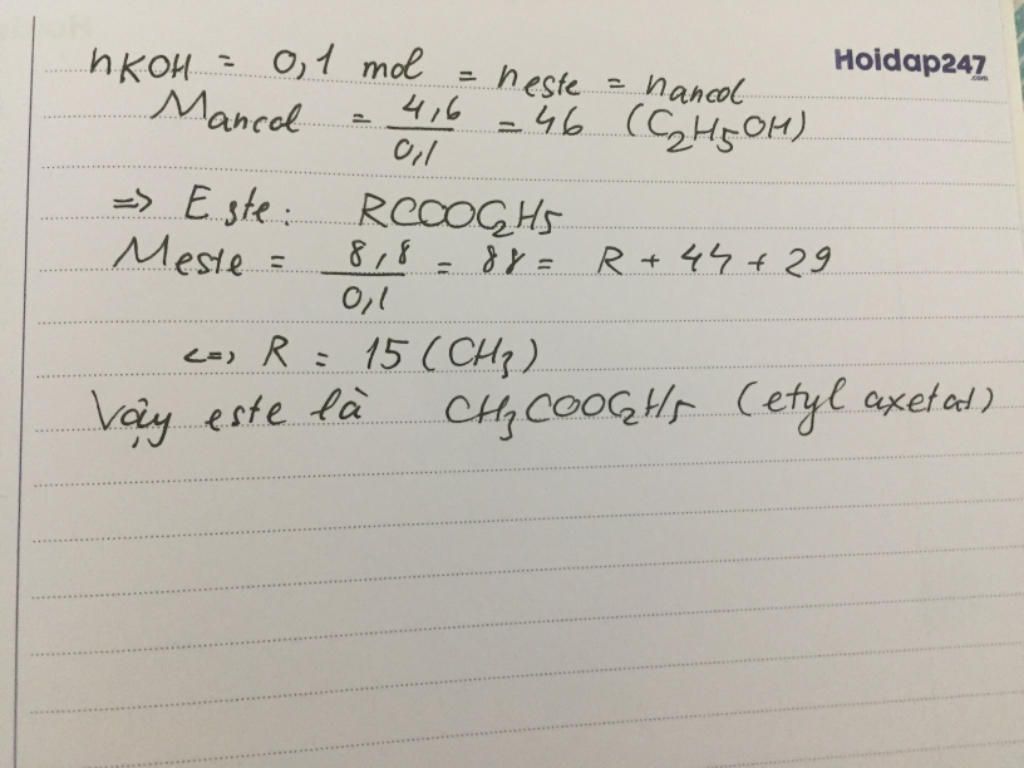 Hoidap247
.com
nKOH = 0,1 mol = neste = nancol
Mancol = 4,6/0,1 = 46 (C2H5OH)
=> Este: RCOOC2H5
Meste = 8,8/0,1 = 88 = R + 44 + 29
<=> R = 15 (CH3)
Vậy este là CH3COOC2H5 (etyl axetat)